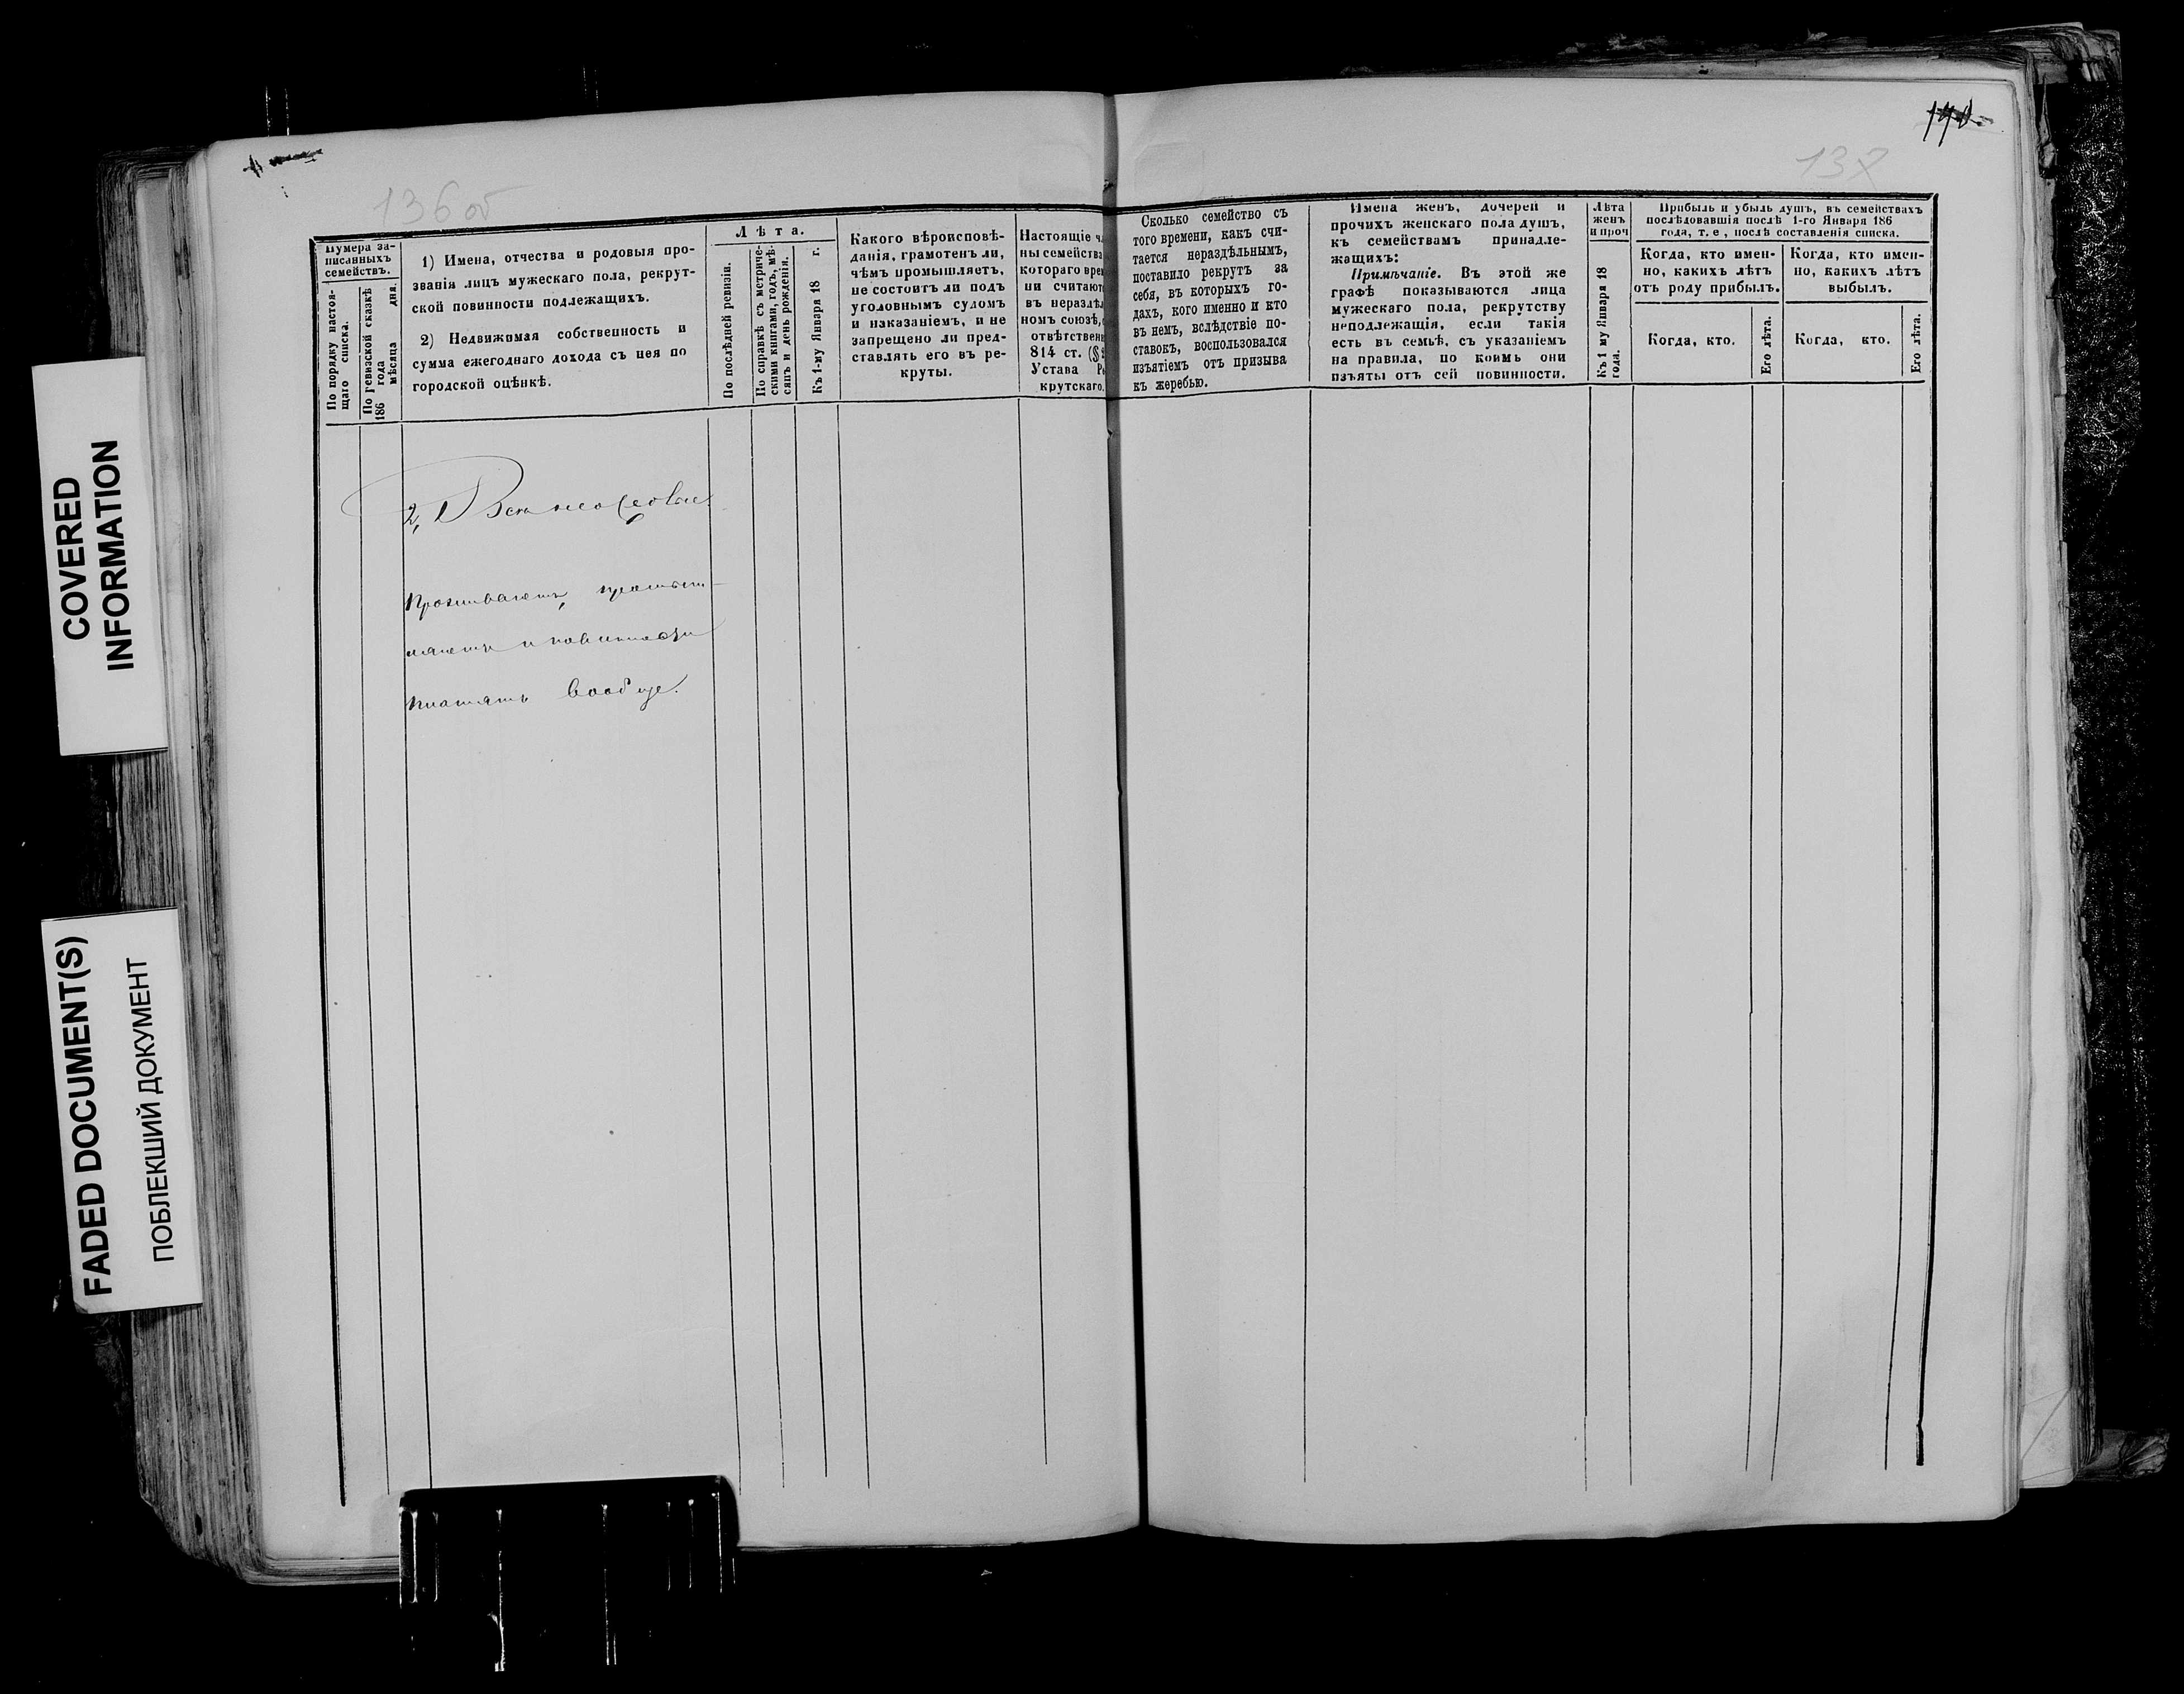 COVERED
INFORMATION
FADED DOCUMENT(S)
ПОБЛЕКШИЙ ДОКУМЕНТ
136 об
137
Нумера за-
писанныхъ
семействъ.
По порядку настоя-
щаго списка.
По ревизской сказкѣ
186 года мѣсяца дня.
1) Имена, отчества и родовыя про-
званія лицъ мужескаго пола, рекрут-
ской повинности подлежащихъ.
2) Недвижимая собственность и
сумма ежегоднаго дохода съ нея по
городской оцѣнкѣ.
Лѣта.
По послѣдней ревизіи.
По справкѣ съ метриче-
скими книгами, годъ, мѣ-
сяцъ и день рожденія.
Къ 1-му Января 18 г.
Какого вѣроисповѣ-
данія, грамотенъ ли,
чѣмъ промышляетъ,
не состоитъ ли подъ
уголовнымъ судомъ
и наказаніемъ, и не
запрещено ли пред-
ставлять его въ ре-
круты.
Настоящіе ч
ны семейства
котораго вре
ни считают
въ неразд
номъ союзѣ,
отвѣтствен
814 ст. (§
Устава Р
крутскаго.
Сколько семейство съ
того времени, какъ счи-
тается нераздѣльнымъ,
поставило рекрутъ за
себя, въ которыхъ го-
дахъ, кого именно и кто
въ немъ, вслѣдствіе по-
ставокъ, воспользовался
изъятіемъ отъ призыва
къ жеребью.
Имена женъ, дочерей и
прочихъ женскаго пола душъ,
къ семействамъ принадле-
жащихъ:
Примѣчаніе. Въ этой же
графѣ показываются лица
мужескаго пола, рекрутству
неподлежащія, если такія
есть въ семьѣ, съ указаніемъ
на правила, по коимъ они
изъяты отъ сей повинности.
Лѣта
женъ
и проч
Къ 1 му Января 18
года.
Прибыль и убыль душъ, въ семействахъ
послѣдовавшія послѣ 1-го Января 186
года, т. е, послѣ составленія списка.
Когда, кто имен-
но, какихъ лѣтъ
отъ роду прибылъ.
Когда, кто.
Его лѣта.
Когда, кто имен-
но, какихъ лѣтъ
выбылъ.
Когда, кто.
Его лѣта.
2,
Проживаютъ, промыш-
ляютъ и повинности
платятъ вообще.